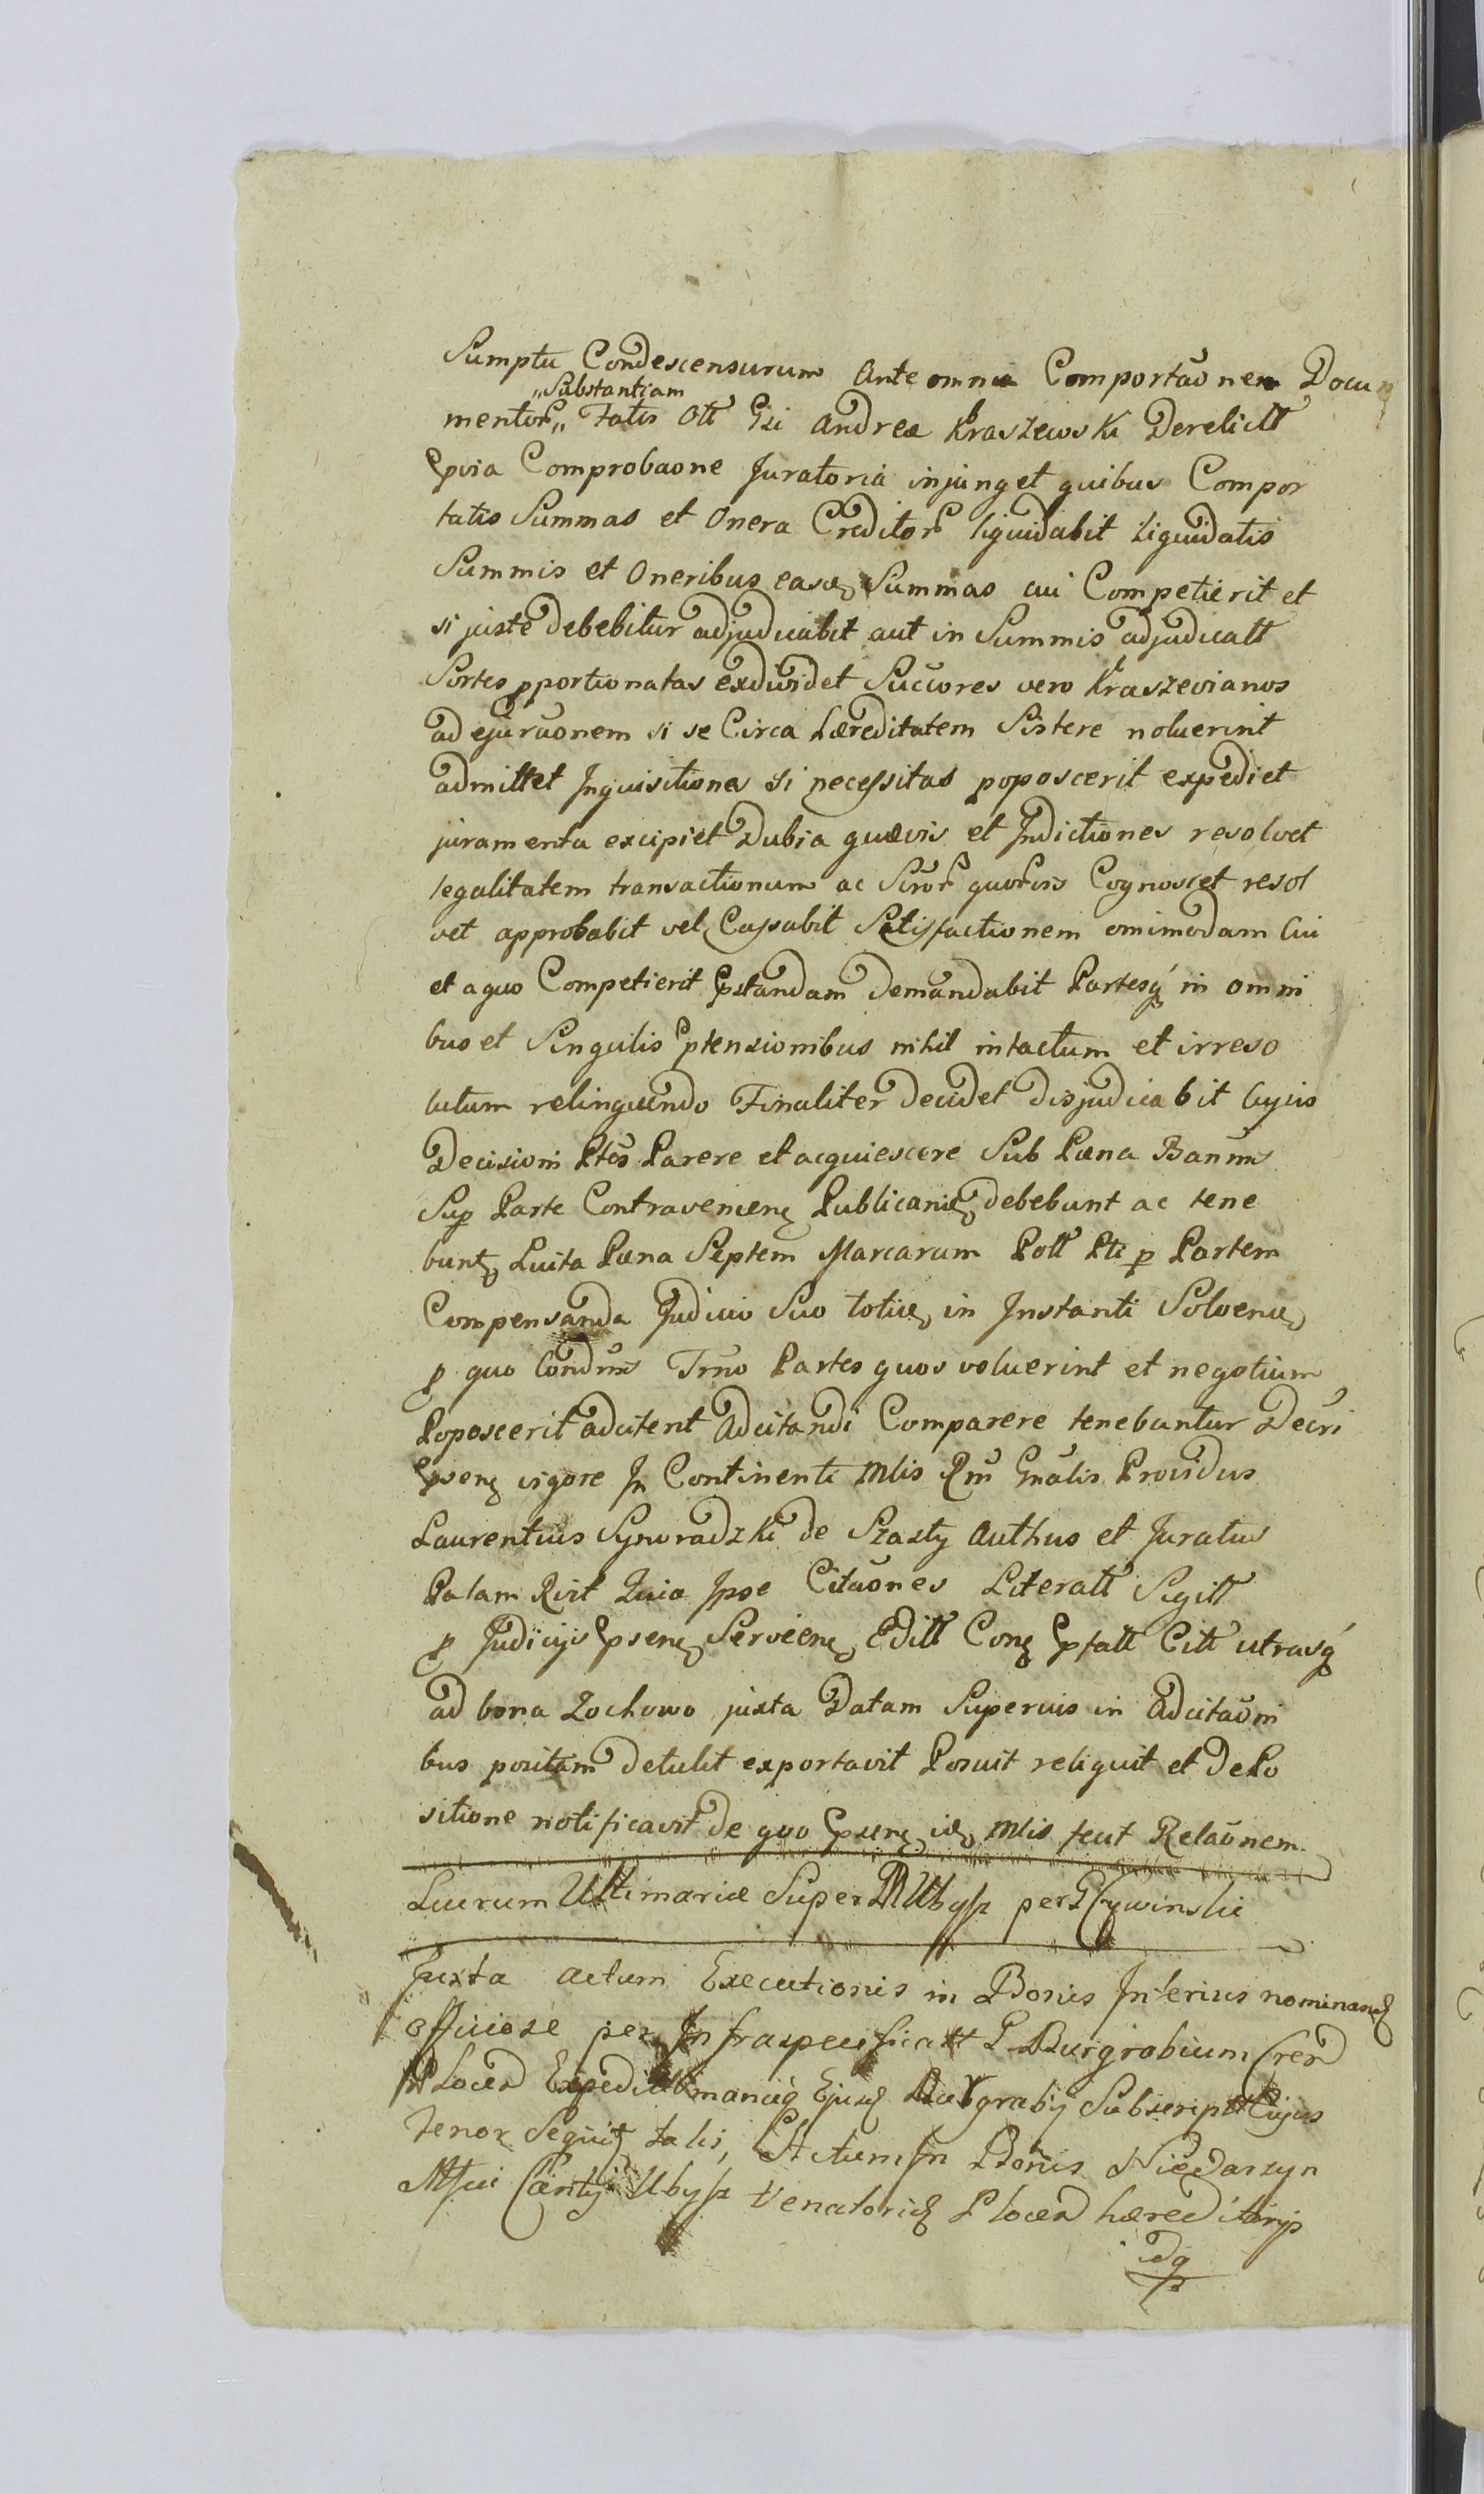 Sumptu Condescensurum Ante omnia Comportãonem Docu
„Substantiam
mentor „ Fatis Olt Gsi Andrea Kraszewski Derelictt
pvia Comprobaone Juratoria injunget quibus Compor
tatis Summas et Onera Creditor liquidabit Liquidatis
Summis et Oneribus easd Summas cui Competierit et
si juste debebitur adjudicabit aut in Summis adjudicatt
Sortes pportionatas exdividet Succores vero Kraszevianos
ad ejuraonem si se Circa hæreditatem Sistere noluerint
admittet Inquisitiones si necessitas poposcerit expediet
juramenta excipiet Dubia quævis et Indictiones resolvet
legalitatem transactionum ac quorvis Cognoscet resol
vet approbabit vel Cassabit Satisfactionem omimodam Cui
et a quo Competierit pstandam Demandabit Partesq in omni
bus et Singulis ptensionibus nihil intactum et irreso
lutum relinquendo Finaliter Decidet disjudicabit Cujus
Decisioni Ptes Parere et acquiescere Sub Pæna Bannis
Sup Parte Contravenien Publicand debebunt ac tene
bunt Luita Pæna Septem Marcarum Poll Pti p Partem
Compensanda Judicio Suo toties in Instanti Solvend
p quo Condnis Trno Partes quos voluerint et negotium
Poposcerit adcitent Adcitandi Comparere tenebuntur Decri
psen vigore In Continenti Mlis Rni Gnalis Providus
Laurentius Synoradzki de Szasty Authus et Juratus
Palam Rvit Quia Ipse Citãones Literatt Sigitt
p Judicijs psen Servien Editt Con pfatt Citt utrasq
ad bona Zochowo juxta Datam Superius in Adcitaõni
bus positam detulit exportavit Posuit reliquit et DePo
sitione notificavit de quo psen id Mlis fecit Relaõnem.
Lucrum Ultimariæ Super Ubysz per Crywinski
Juxta actum Executionis in Bonis Inferius nominand
officiose per Infraspecificatt P Burgrabium Cren
Plocen Expeditt manuq Ejusd Burgrabij Subscriptt Cujus
tenor Sequit talis, Actum In Bonis Niedarzyn
Msui Ubysz Venatorid Plocen hæreditarijs